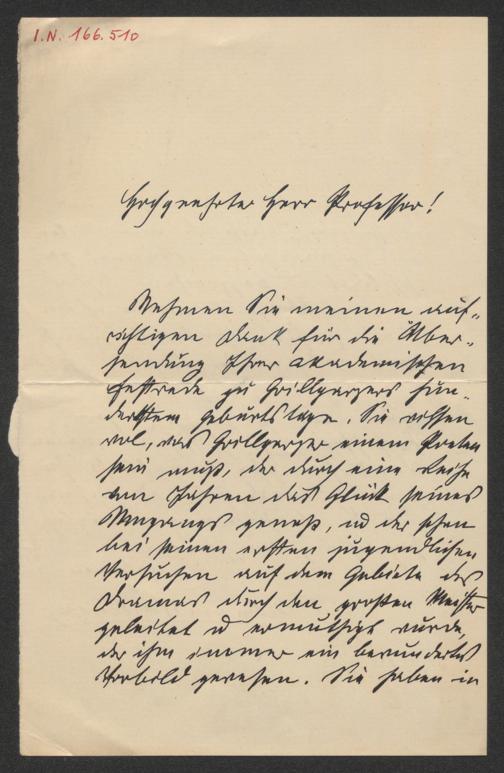 I.N. 166.510
Hochgeehrter Herr Professor!
Nehmen Sie meinen auf-
richtigen Dank für die Über-
sendung Ihrer akademischen
Festrede zu Grillparzers hun-
dertstem Geburtstage. Sie wissen
wol, was Grillparzer einem Poeten
sein muß, der durch eine Reihe
von Jahren das Glück seines
Umgangs genoß, u der schon
bei seinen ersten jugendlichen
Versuchen auf dem Gebiete des
Dramas durch den großen Meister
geleitet u ermuthigt wurde,
der ihm immer ein bewundertes
Vorbild gewesen. Sie haben in